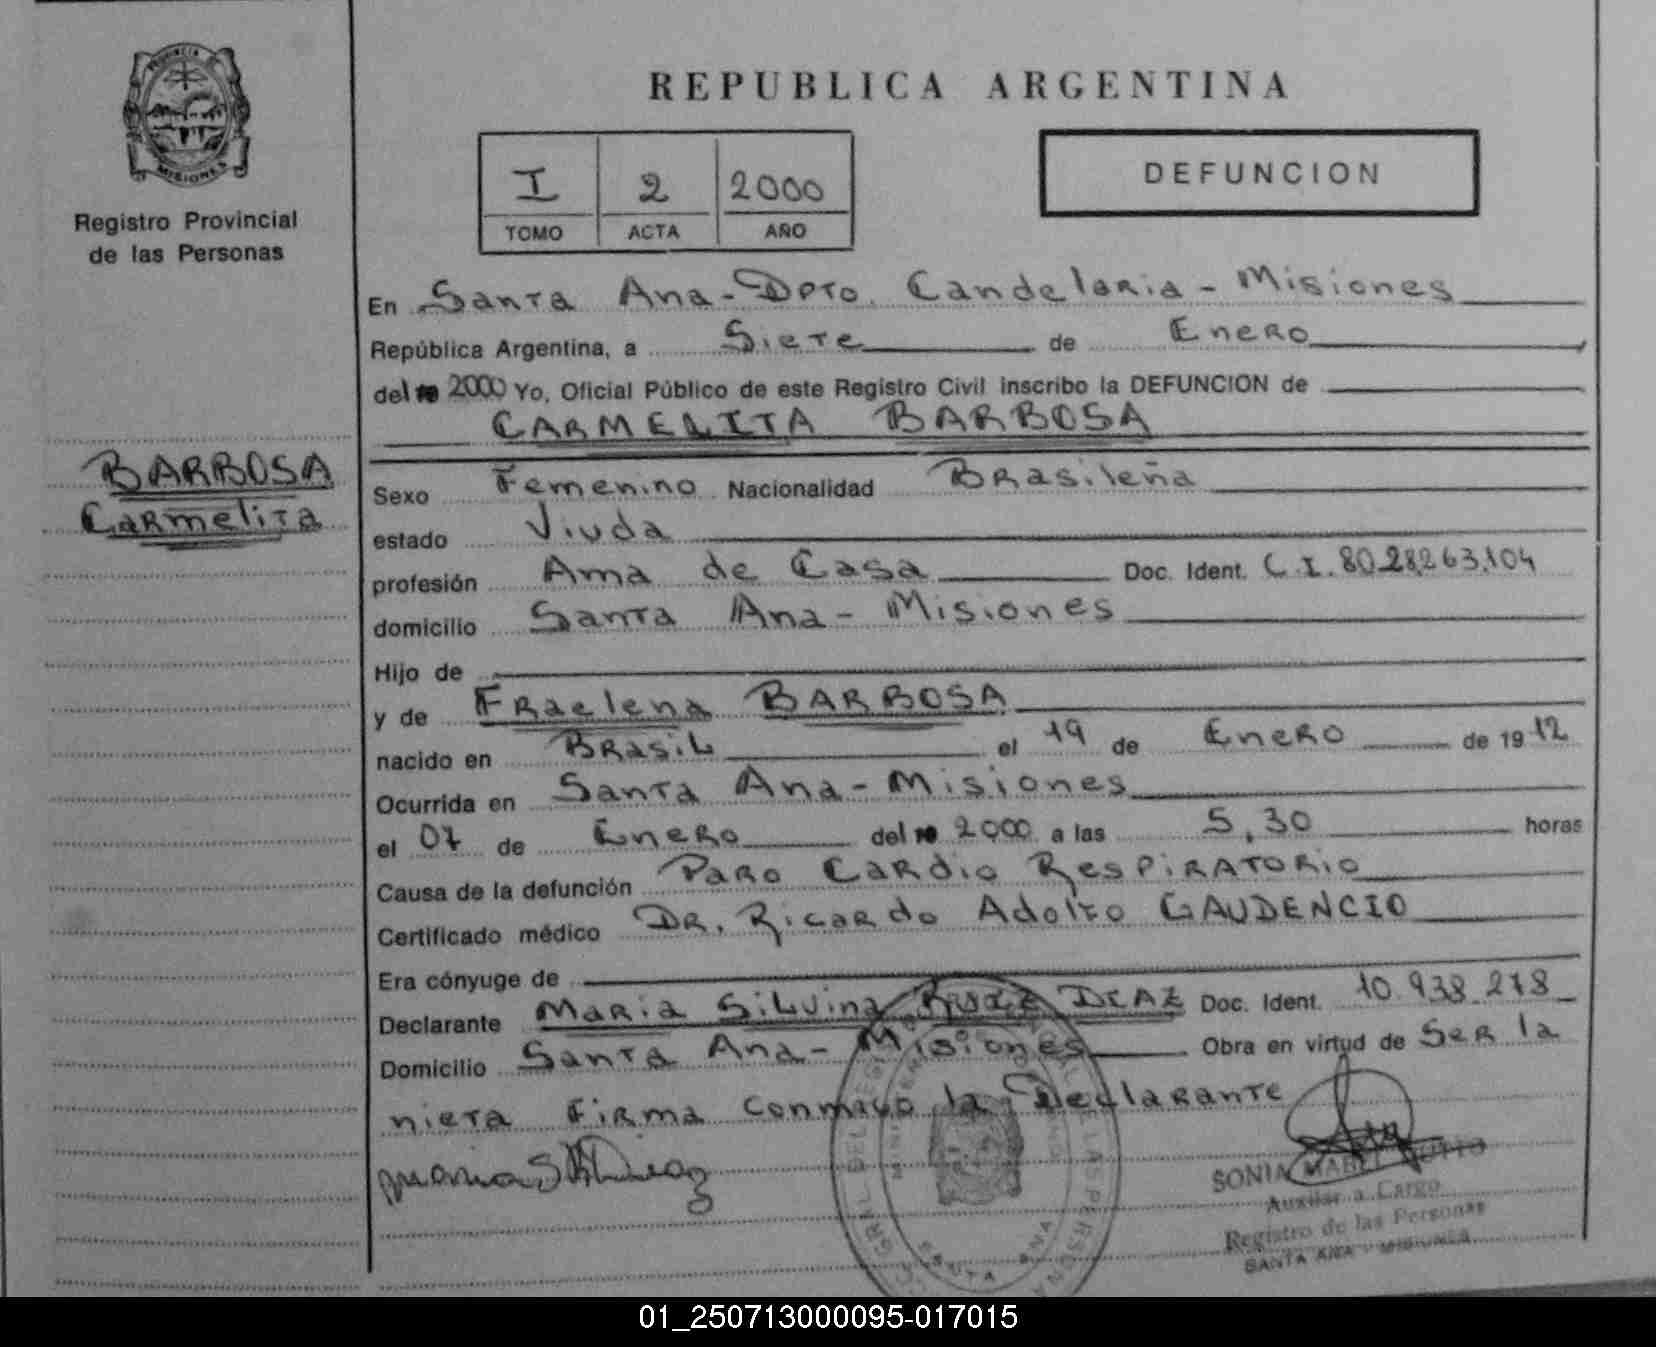 PROVINCIA
MISIONES
Registro Provincial
de las Personas
BARBOSA
Carmelita
REPUBLICA ARGENTINA
I 2 2000
TOMO ACTA AÑO
DEFUNCION
En Santa Ana - Dpto. Candelaria - Misiones
República Argentina, a Siete de Enero
del 2000 Yo, Oficial Público de este Registro Civil inscribo la DEFUNCION de
CARMELITA BARBOSA
Sexo Femenino Nacionalidad Brasileña
estado Viuda
profesión Ama de Casa Doc. Ident. C.I. 8028263104
domicilio Santa Ana - Misiones
Hijo de
y de Fraelena BARBOSA
nacido en Brasil el 19 de Enero de 1912
Ocurrida en Santa Ana - Misiones
el 07 de Enero del 2000 a las 5,30 horas
Causa de la defunción Paro Cardio Respiratorio
Certificado médico Dr. Ricardo Adolfo GAUDENCIO
Era cónyuge de
Declarante Maria Silvina DIAZ Doc. Ident. 10.938.278
Domicilio Santa Ana - Misiones Obra en virtud de Ser la
nieta Firma conmigo la Declarante
SONIA MABEL
Auxiliar a Cargo
Registro de las Personas
SANTA ANA - MISIONES
SANTA ANA
01_250713000095-017015